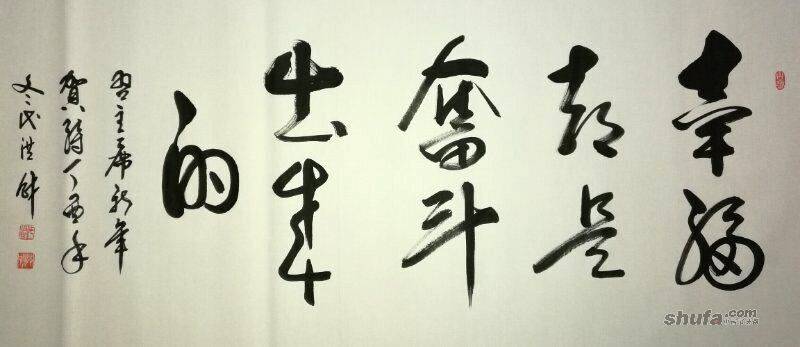 幸福
都是
奋斗
出来
的
习主席新年
贺词丁酉年
冬戊洪锋
shufa.com